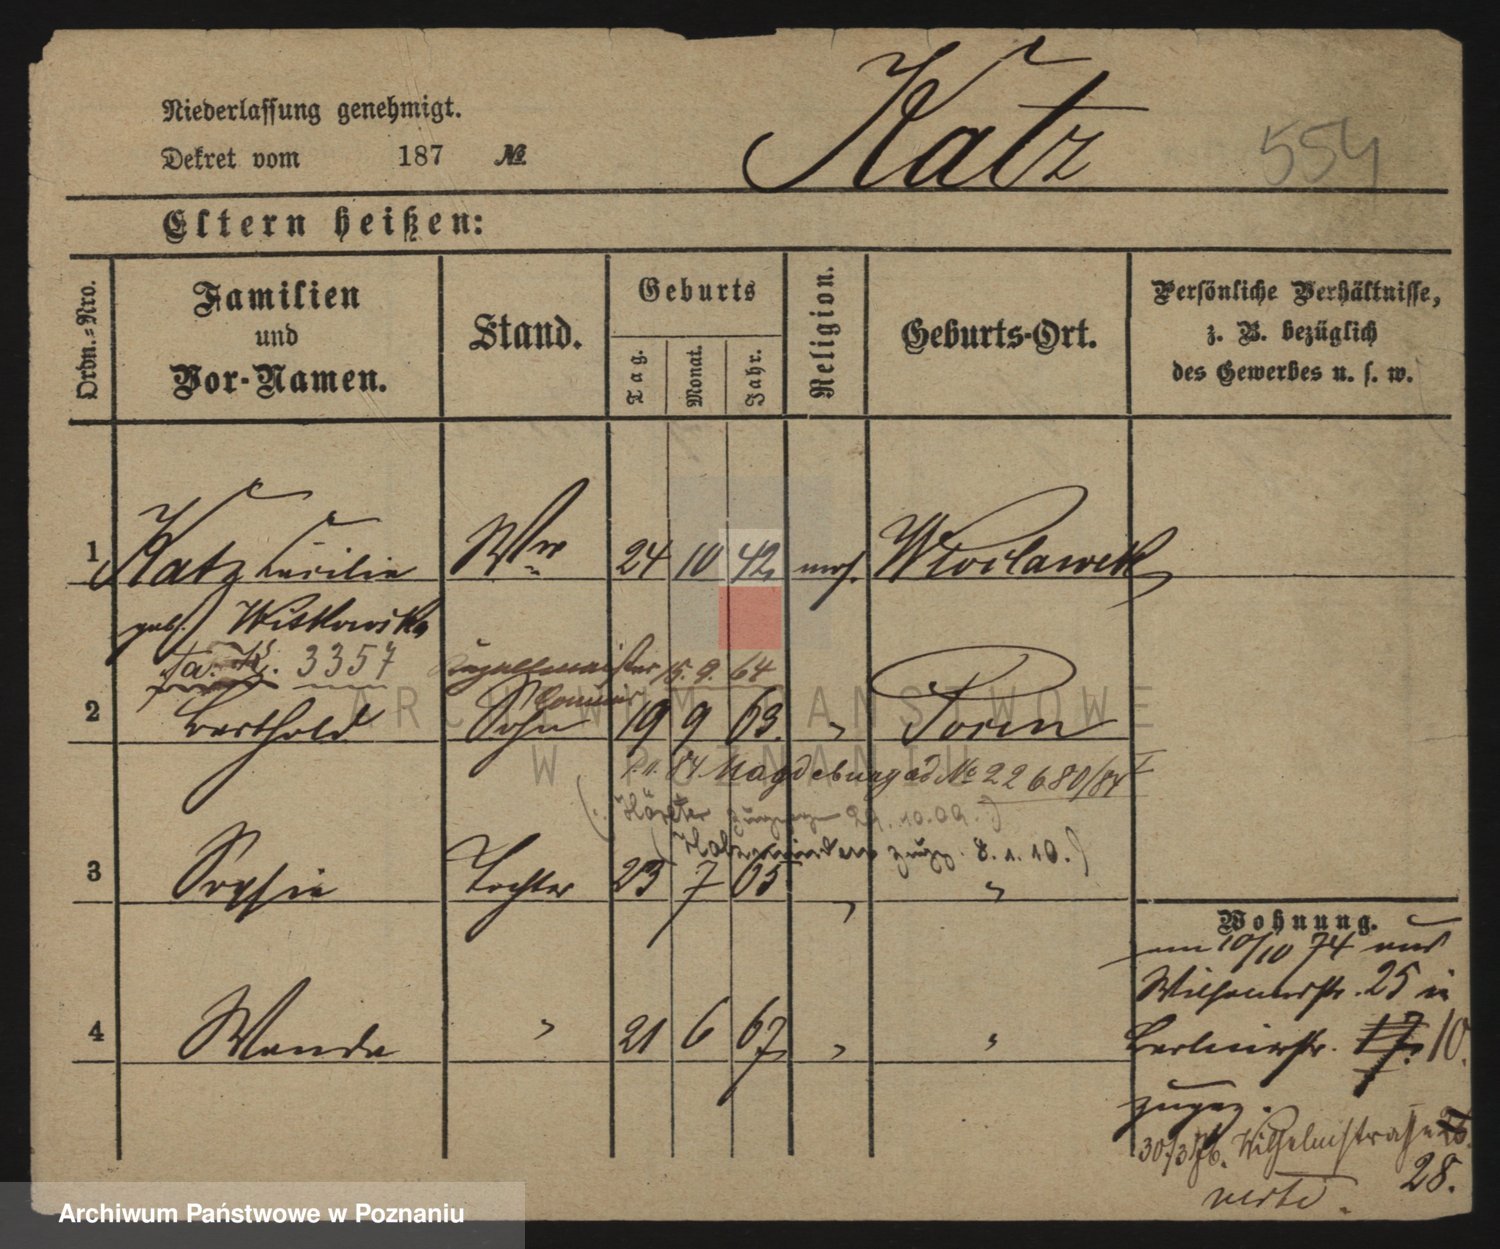 Niederlassung genehmigt.
Dekret vom 187 №
Katz
554
Eltern heißen:
Ordn.-Nro.
Familien und Vor-Namen.
Stand.
Geburts
Tag.
Monat.
Jahr.
Religion.
Geburts-Ort.
Persönliche Verhältnisse,
z. B. bezüglich
des Gewerbes u. s. w.
1 Katz Cäcilie Wwe 24 10 42 mos. Wloclawek
geb. Witkowska
3357 Kapellmeister 15. 9. 64
2 Berthold Sohn 19 9 63. " Posen
1.1.84 Magdeburg ad № 22680/84
29.10.09.)
zugz. 8.1.10.)
3 Sophie Tochter 23 7 65 " "
4 Wanda " 21 6 67 " "
Wohnung.
am 10/10 74 aus
Wilhelmstr. 25 in
Berlinerstr. 17. 10.
zugez.
30./3 76. Wilhelmstrasse
28.
verte.
ARCHIWUM PAŃSTWOWE
W POZNANIU
Archiwum Państwowe w Poznaniu